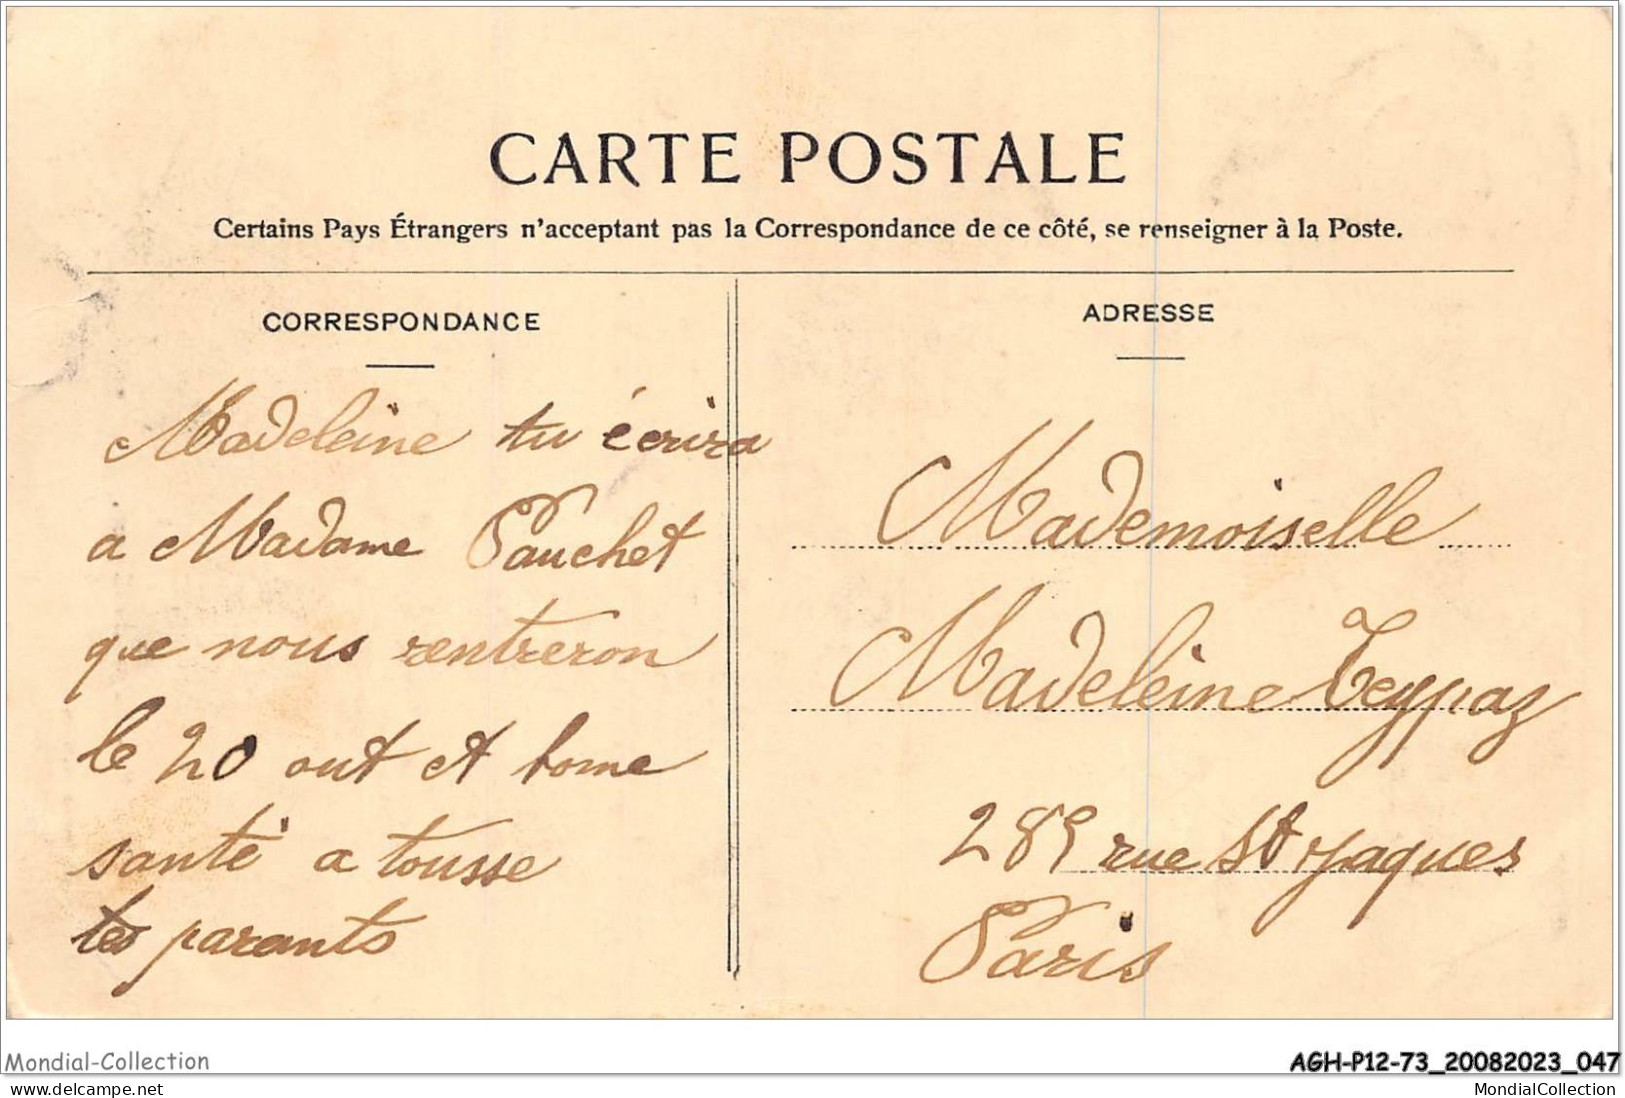 CARTE POSTALE
Certains Pays Étrangers n'acceptant pas la Correspondance de ce côté, se renseigner à la Poste.
CORRESPONDANCE
Madeleine tu écrira
a Madame Pauchet
que nous rentreron
le 20 out et bone
santé a tousse
tes parants
ADRESSE
Mademoiselle
Madeleine Teyppaz
289 rue St Jaques
Paris
Mondial-Collection
AGH-P12-73_20082023_047
MondialCollection